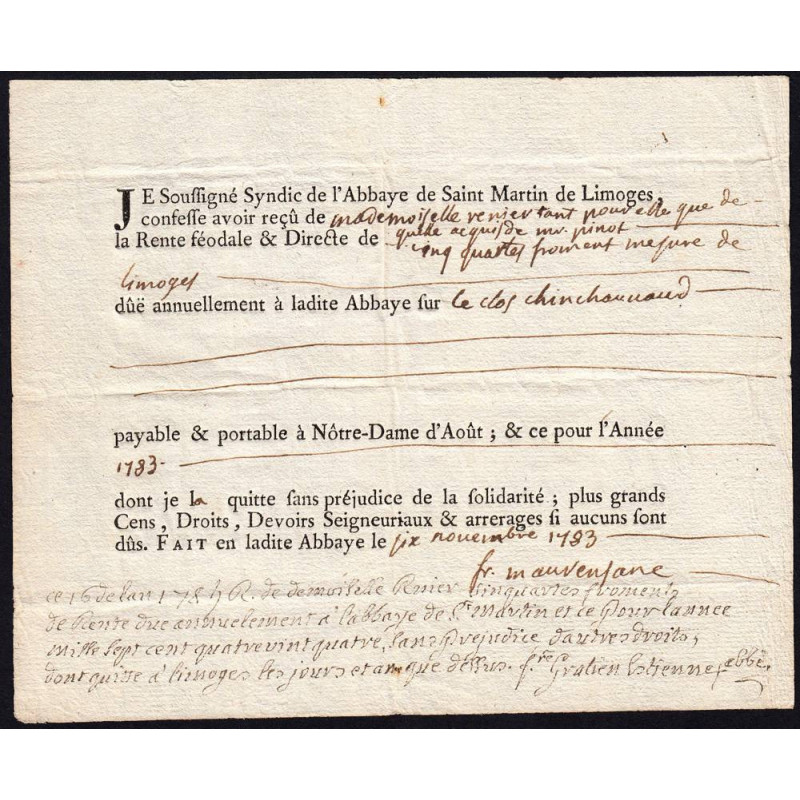 JE Soussigné Syndic de l'Abbaye de Saint Martin de Limoges,
confesse avoir reçû de mademoiselle renier tant pour elle que de
la Rente féodale & Directe de quelle acquis de mr. pinot
cinq quartes froment mesure de
limoges
dûë annuellement à ladite Abbaye sur le clos chinchauvaud
payable & portable à Nôtre-Dame d'Août ; & ce pour l'Année
1783
dont je la quitte sans préjudice de la solidarité ; plus grands
Cens, Droits, Devoirs Seigneuriaux & arrerages si aucuns sont
dûs. FAIT en ladite Abbaye le six novembre 1783
fr. mauvensane
ce 16 de lan 1784 R. de demoiselle Renier cinq quartes froment
de Rente due annuellement a labbaye de St Martin et ce pour lannee
mille sept cent quatrevint quatre, sans prejudice dautres droits,
dont quitte a limoges les jours et an que dessus. fre Gratien Estienne, abbé.